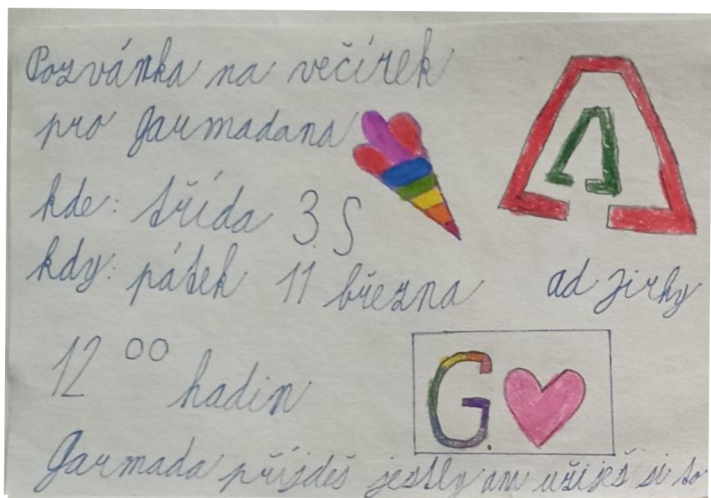 Pozvánka na večírek
pro Garmadana
kde: třída 3. S
kdy: pátek 11 března
od Jirky
12 00 hadin
G.
Garmada příjdeš jestly am užiješ si to